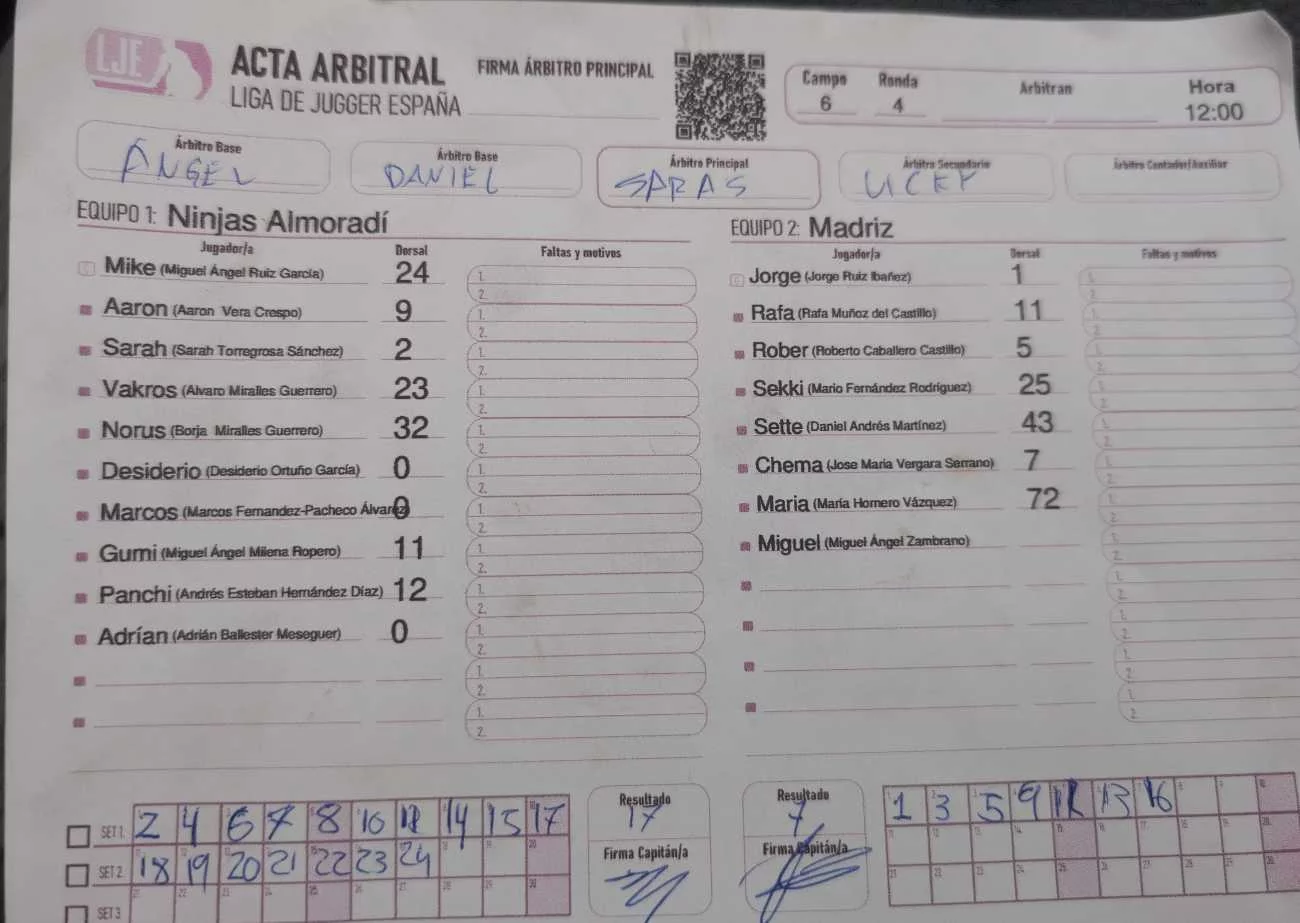 LJE ACTA ARBITRAL FIRMA ÁRBITRO PRINCIPAL
LIGA DE JUGGER ESPAÑA
Campo Ronda Arbitran Hora
6 4 12:00
Árbitro Base Árbitro Base Árbitro Principal Árbitro Secundario Árbitro Contador/Auxiliar
ÁNGEL DANIEL SARAS
EQUIPO 1: Ninjas Almoradí
Jugador/a Dorsal Faltas y motivos
Mike (Miguel Ángel Ruiz García) 24 1.
2.
Aaron (Aaron Vera Crespo) 9 1.
2.
Sarah (Sarah Torregrosa Sánchez) 2 1.
2.
Vakros (Alvaro Miralles Guerrero) 23 1.
2.
Norus (Borja Miralles Guerrero) 32 1.
2.
Desiderio (Desiderio Ortuño García) 0 1.
2.
Marcos (Marcos Fernandez-Pacheco Álvarez) 0 1.
2.
Gumi (Miguel Ángel Milena Ropero) 11 1.
2.
Panchi (Andrés Esteban Hernández Díaz) 12 1.
2.
Adrían (Adrián Ballester Meseguer) 0 1.
2.
1.
2.
1.
2.
EQUIPO 2: Madriz
Jugador/a Dorsal Faltas y motivos
Jorge (Jorge Ruiz Ibañez) 1 1.
2.
Rafa (Rafa Muñoz del Castillo) 11 1.
2.
Rober (Roberto Caballero Castillo) 5 1.
2.
Sekki (Mario Fernández Rodríguez) 25 1.
2.
Sette (Daniel Andrés Martínez) 43 1.
2.
Chema (Jose Maria Vergara Serrano) 7 1.
2.
Maria (María Homero Vázquez) 72 1.
2.
Miguel (Miguel Ángel Zambrano) 1.
2.
1.
2.
1.
2.
1.
2.
1.
2.
SET 1 2 4 6 7 8 10 14 15 17
SET 2 18 19 20 21 22 23 24
SET 3
Resultado
17
Firma Capitán/a
Resultado
7
Firma Capitán/a
1 3 5 9 13 16